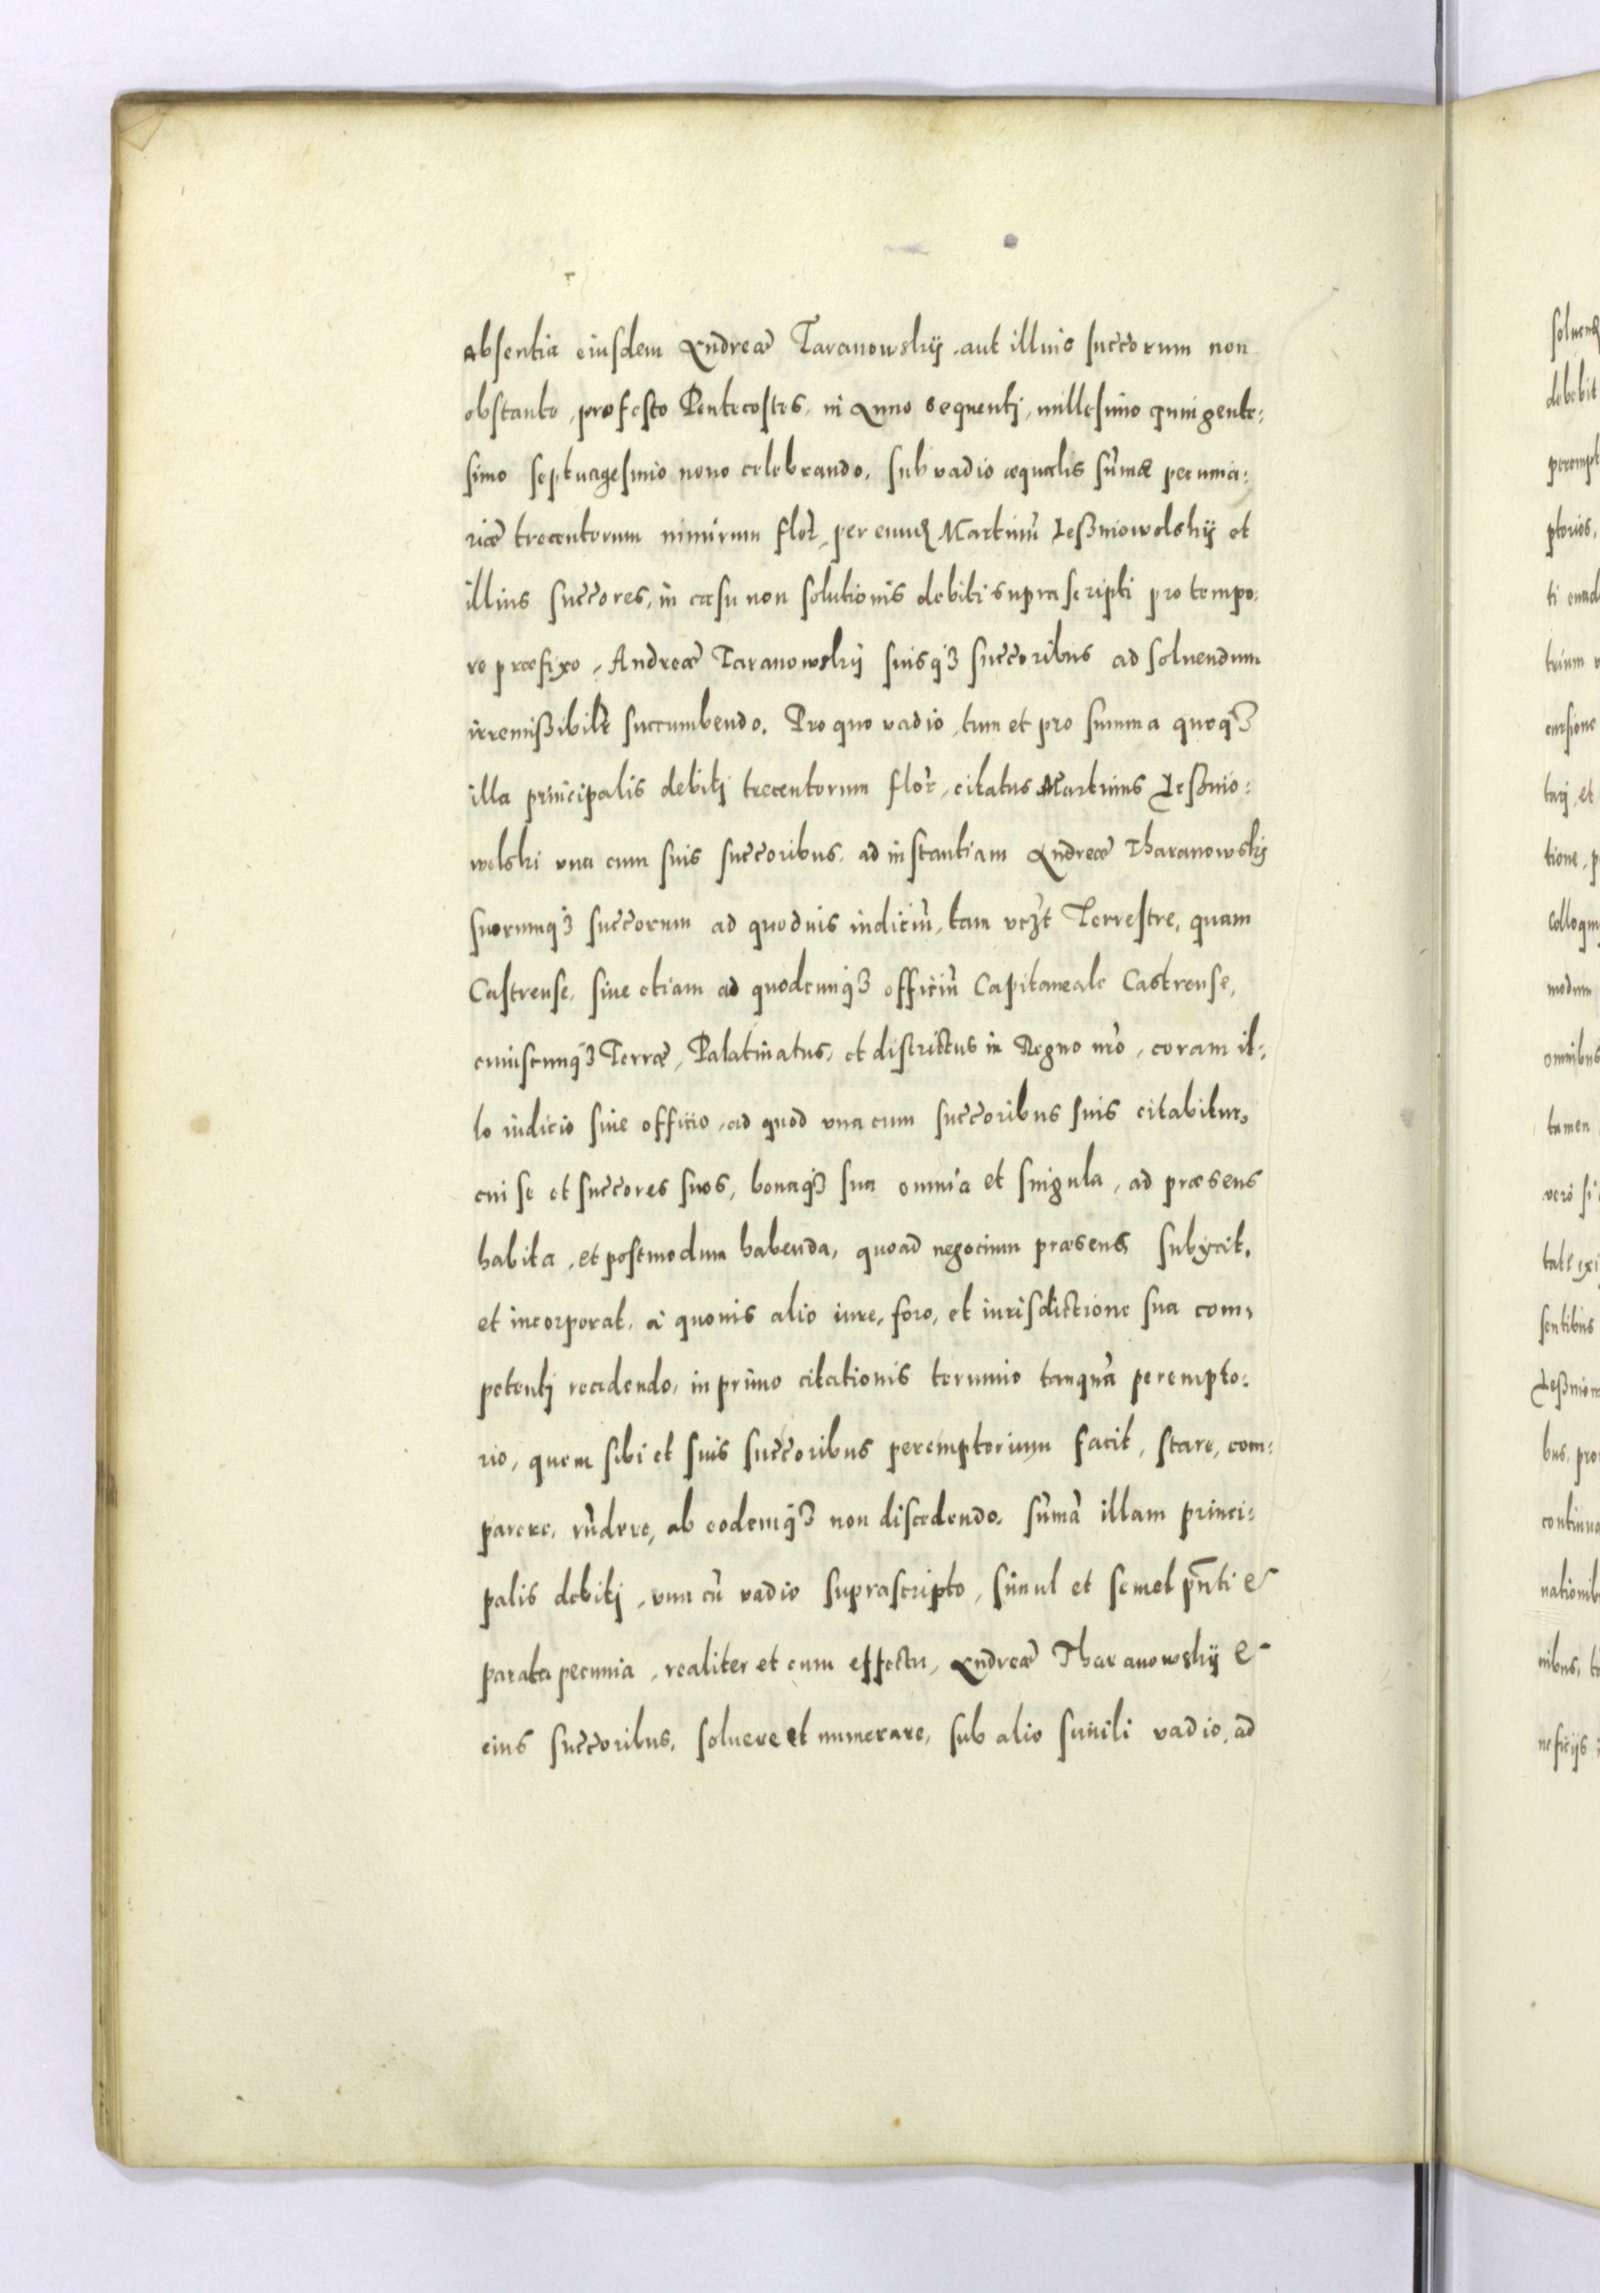 absentia eiusdem Andreæ Taranowskij, aut illius succ̃orum non
obstante, pro festo Pentecostes, in Anno sequentj, millesimo quingente:
simo septuagesimo nono celebrando, sub vadio æqualis sum̃æ pecunia:
riæ trecentorum nimirum flor̃, per eund Martinũ Leßniowolskij et
illius succ̃ores, in casu non solutionis debiti suprascripti pro tempo:
re præfixo, Andreæ Taranowskij suisqꝫ succ̃oribus ad soluendum
irremißibilr̃ succumbendo. Pro quo vadio, tum et pro summa quoqꝫ
illa principalis debitj trecentorum flor̃, citatus Martinus Leßnio:
wolski vna cum suis succ̃oribus, ad instantiam Andreæ Tharanowskij
suorumqꝫ succ̃orum ad quoduis iudiciũ, tam vcꝫt Terrestre, quam
Castrense, siue etiam ad quodcunqꝫ officiũ Capitaneale Castrense,
cuiuscunqꝫ Terræ, Palatinatus, et districtus in Regno nr̃o, coram il:
lo iudicio siue officio, ad quod vna cum succ̃oribus suis citabitur,
cui se et succ̃ores suos, bonaqꝫ sua omnia et singula, ad præsens
habita, et postmodum habenda, quoad negocium præsens, subijcit,
et incorporat, à quouis alio iure, foro, et iurisdictione sua com,
petentj recedendo, in primo citationis termino tanquã perempto:
rio, quem sibi et suis succ̃oribus peremptorium facit, stare, com:
parere, rñdere, ab eodemqꝫ non discedendo, sum̃ã illam princi:
palis debitj, vna cũ vadio suprascripto, simul et semel pñti &
parata pecunia, realiter et cum effectu, Andreæ Tharanowskij &
eius succ̃oribus, soluere et numerare, sub alio simili vadio, ad